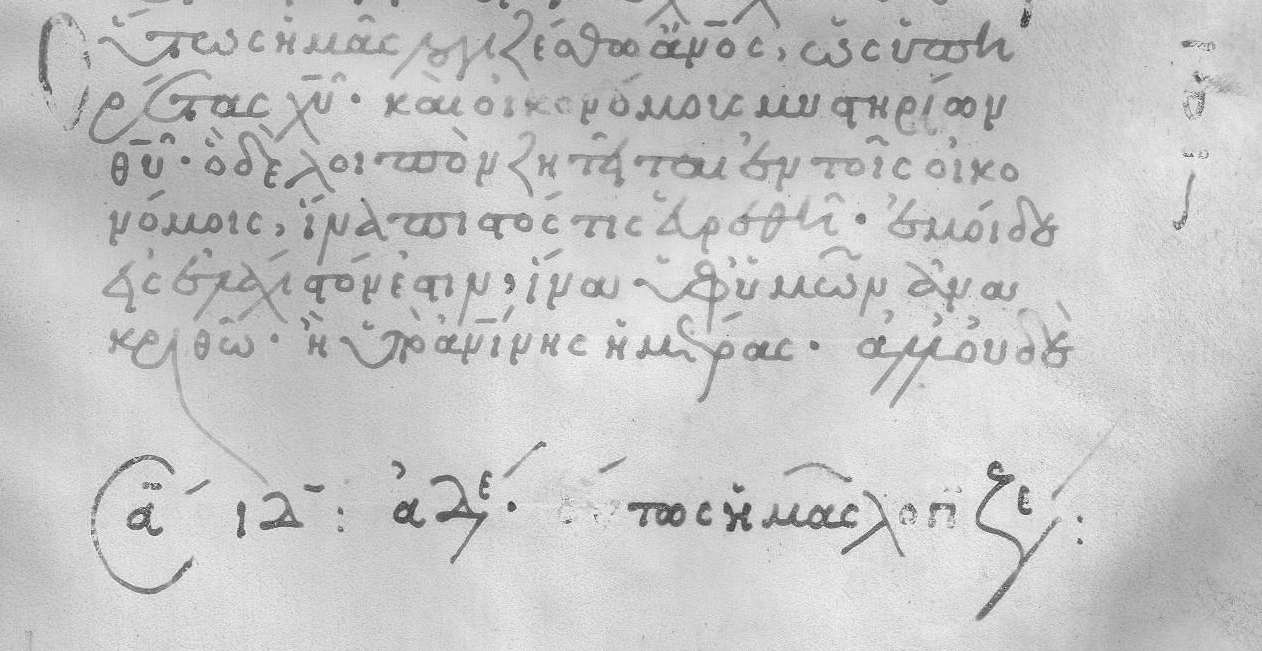 Οὕτως ἡμᾶς λογιζέσθω ἄν̅ος, ὡς ὑπη
ρέτας χ̅υ̅· καὶ οἰκονόμοις μυστηρίων
θ̅υ̅· ὃ δὲ λοιπὸν ζητεῖται ἐν τοῖς οἰκο
νόμοις, ἵνα πιστός τις εὑρεθῆ· ἐμοὶ δὲ
εἰς ἐλάχιστόν ἐστιν, ἵνα ὑφ' ὑμῶν ἀνα
κριθῶ· ἢ ὑπὸ ἀν̅ίνης ἡμέρας· ἀλλ' οὐδὲ
ιδ̅: ἀδε· οὕτως ἡμᾶς λογιζε: